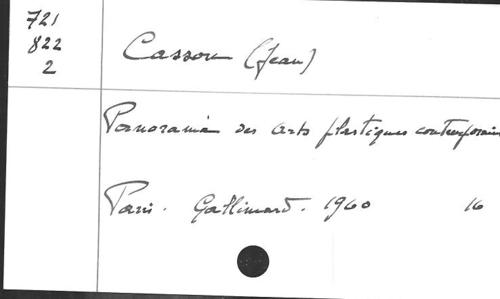 721
822
2
Cassou (Jean)
Panorama des arts plastiques contemporains
Paris. Gallimard. 1960 16